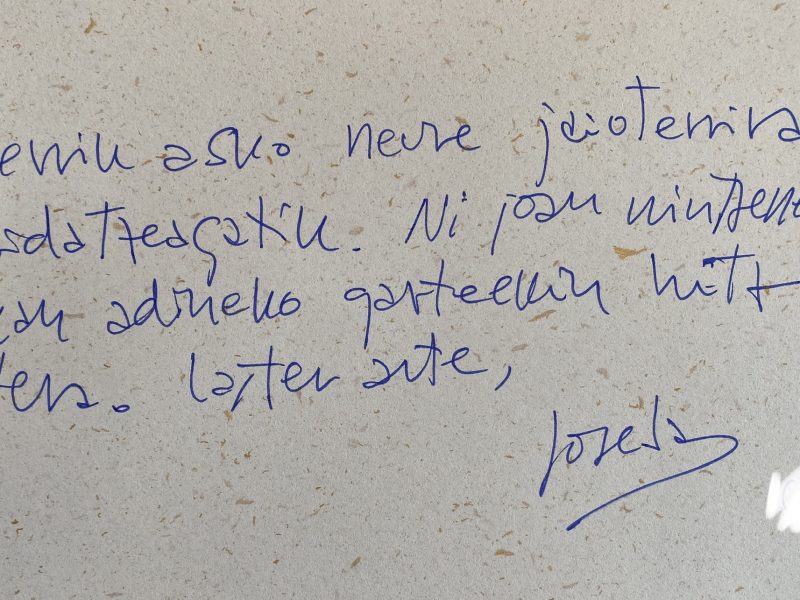 errik asko neure jaioterrira
datzeagatik. Ni joan nintzen
adineko gazteekin hitz-
tera. Laster arte,
Joseba